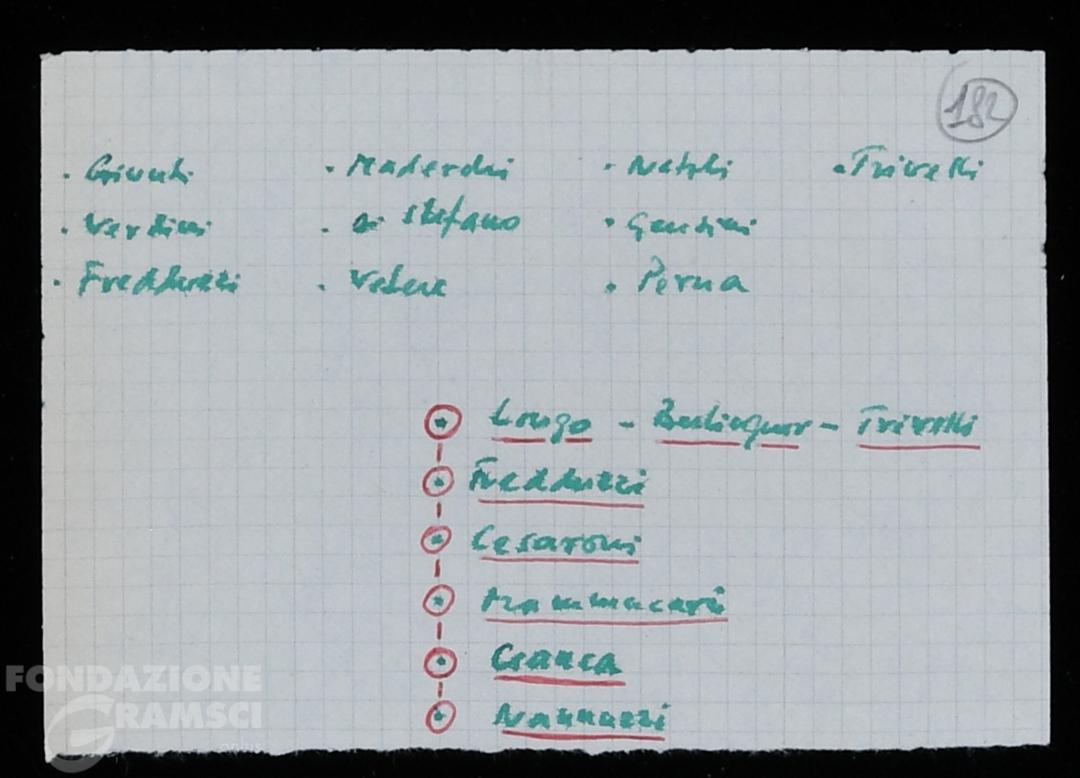 182
· Giunti · Maderchi · Natoli · Trivelli
· Verdini · di Stefano · Gensini
· Fredduzzi · Vetere · Perna
Longo - Berlinguer - Trivelli
Fredduzzi
Cesaroni
Mammucari
Cianca
Nannuzzi
FONDAZIONE
GRAMSCI